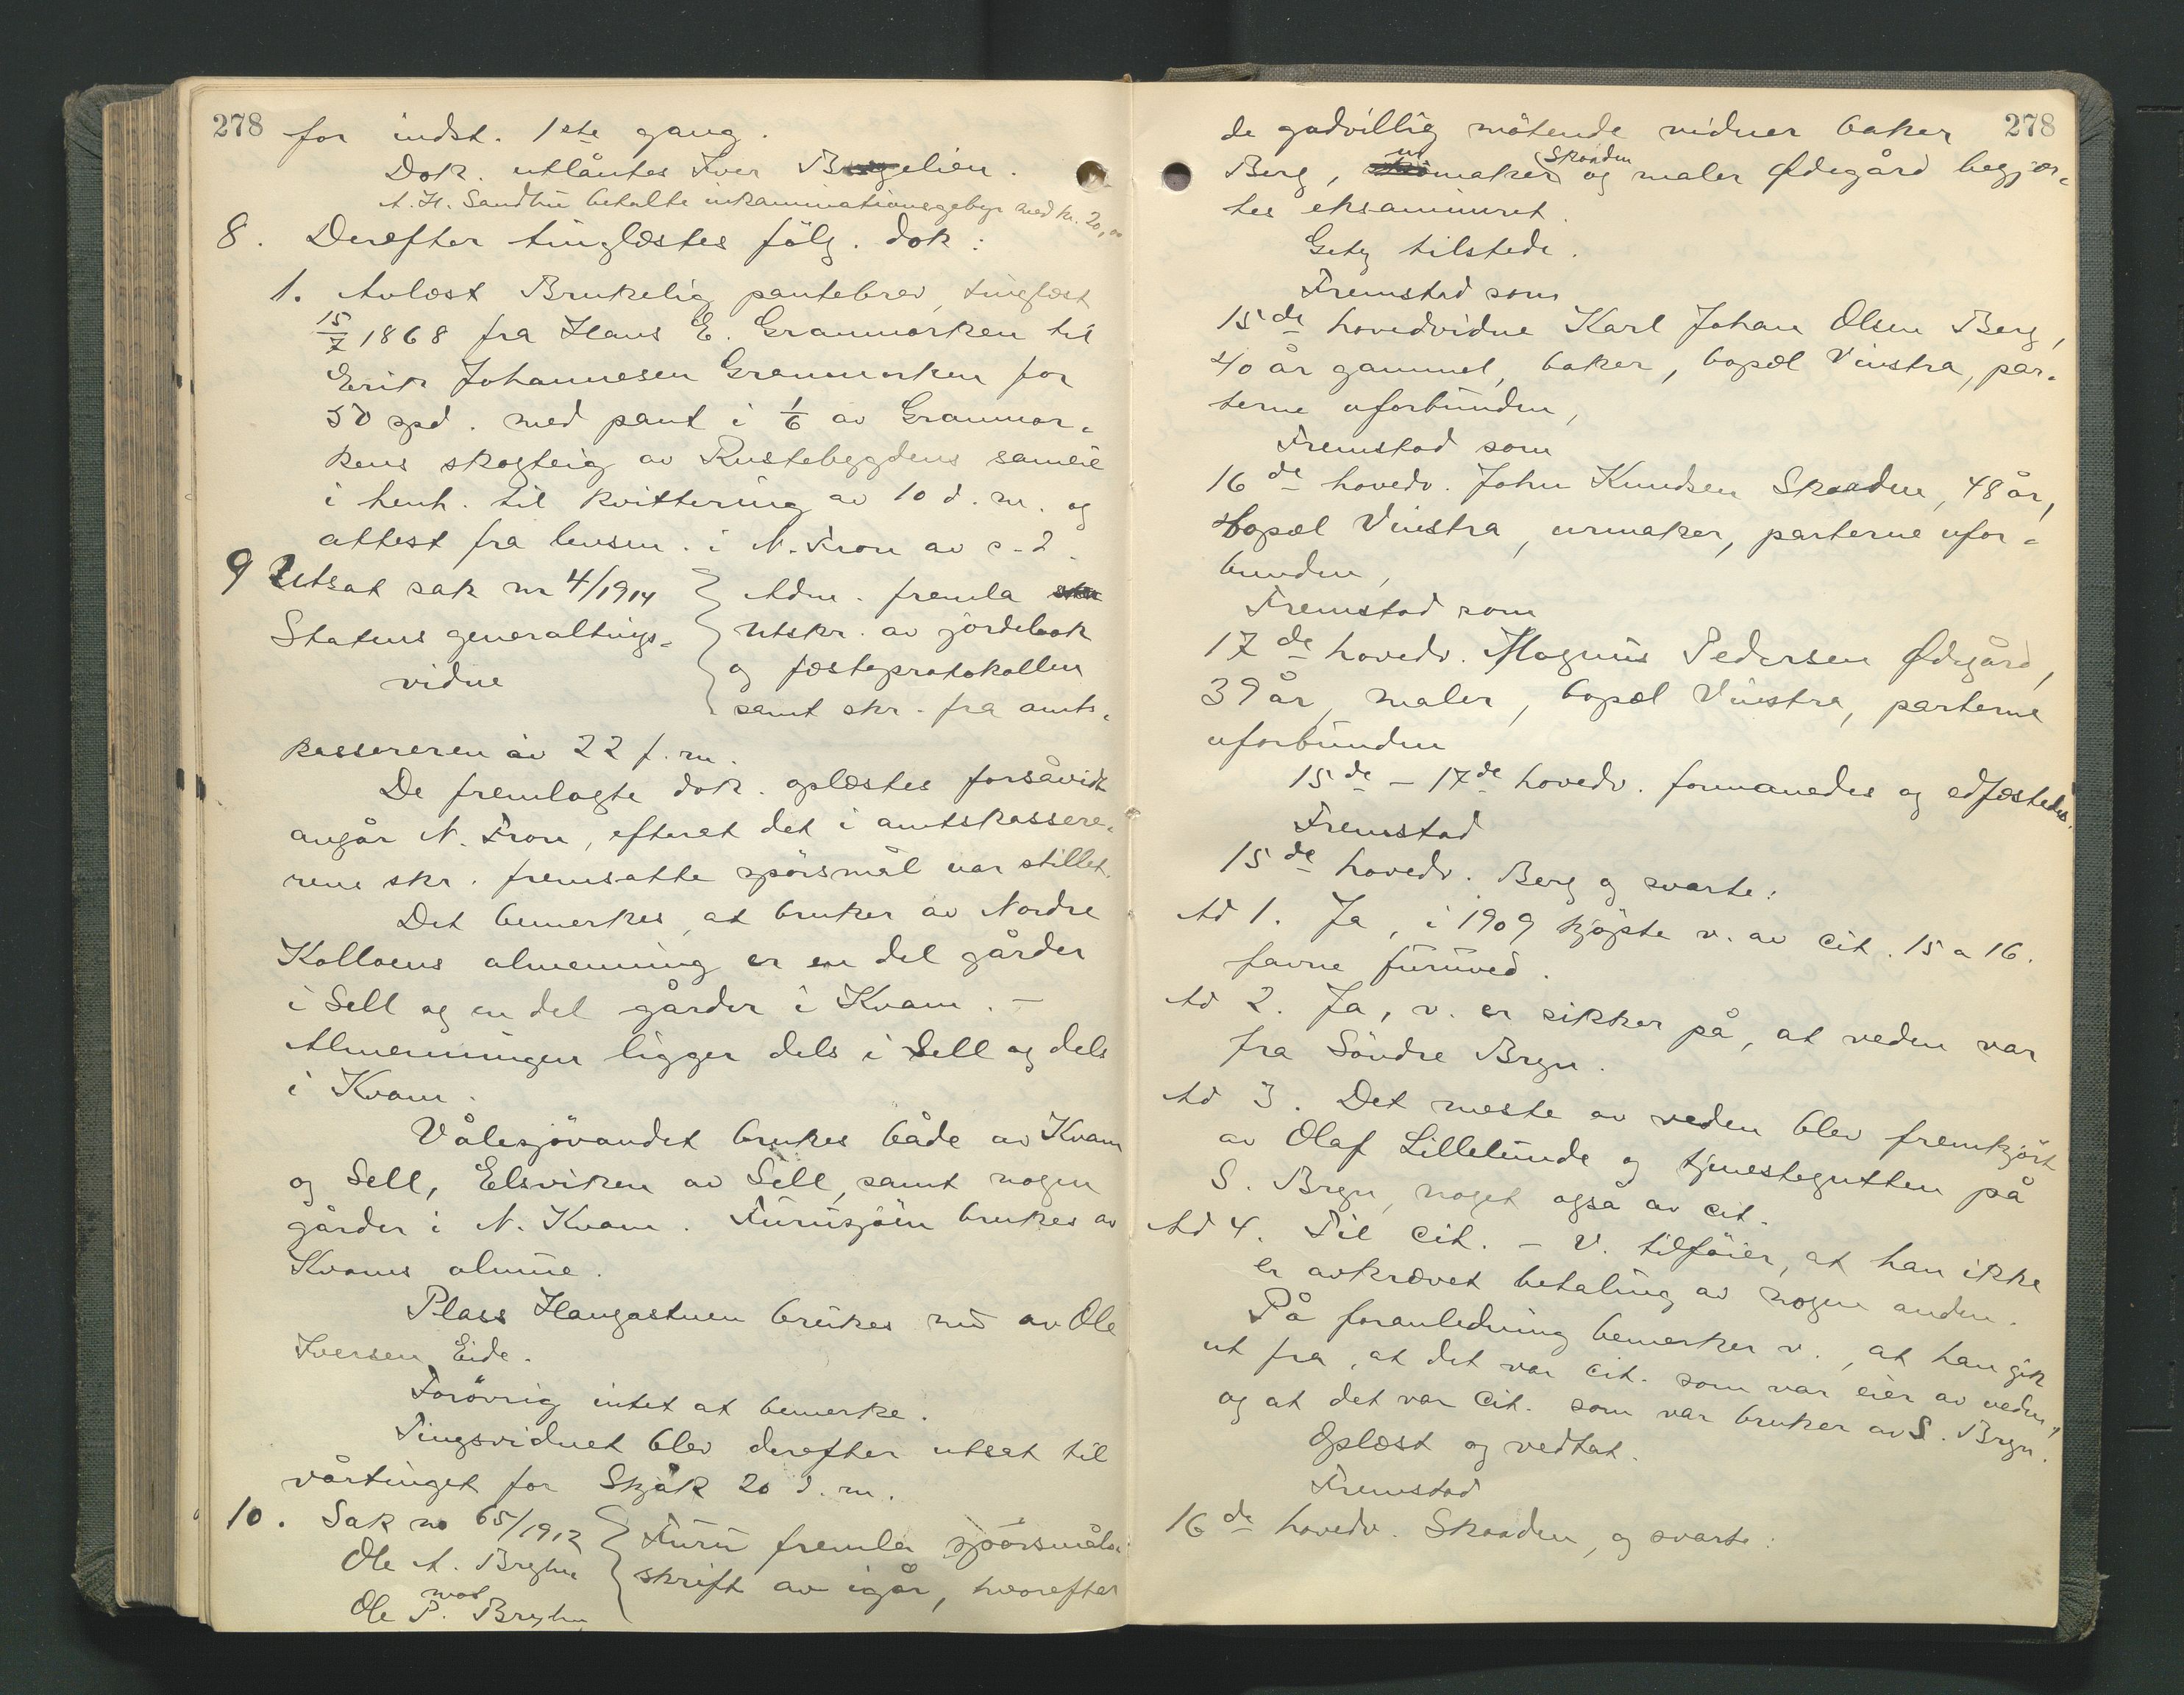 278
for indst. 1ste gang.
Dok. utlåntes Iver Bryelien.
A. H. Sandbu betalte inkaminationsgebyr med kr. 20,00
8. Derefter tinglæstes følg. dok:
1. Avlæst Brukelig pantebrev, tinglæst
15/7 1868 fra Hans E. Granmorken til
Erik Johannesen Granmorken for
50 spd. med pant i 1/6 av Granmor-
kens skogteig av Rustebygdens sameie
i henh. til kvittering av 10 d. m. og
attest fra lensm. i N. Fron av s. d.
9 Utsat sak nr 4/1914
Statens generaltings-
vidne
Adm. fremla
utskr. av jordebok
og fæsteprotokollen
samt skr. fra amts-
kassereren av 22 f. m.
De fremlagte dok. oplæstes forsåvidt
angår N. Fron, efterat det i amtskassere-
rens skr. fremsatte spörsmål var stillet.
Det bemerkes, at bruker av Nordre
Kolloens almenning er en del gårder
i Sell og en del gårder i Kvam. –
Almenningen ligger dels i Sell og dels
i Kvam.
Vålesjövandet brukes både av Kvam
og Sell, Elsviken av Sell, samt nogen
gårder i N. Kvam. Furusjöen brukes av
Kvams almue.
Plass Haugastuen brukes nu av Ole
Iversen Eide.
Forövrig intet at bemerke.
Tingsvidnet blev derefter utsat til
vårtinget for Skjåk 20 d. m.
10. Sak no 65/1912
Ole A. Bryhn
mot
Ole P. Bryhn
Furu fremla spörsmåls-
skrift av igår, hvorefter
278
de godvillig mötende vidner baker
Berg, urmaker Skaaden og maler Ødegård begjær-
tes eksamineret.
Getz tilstede.
Fremstod som
15de hovedvidne Karl Johan Olsen Berg,
40 år gammel, baker, bopæl Vinstra, par-
terne uforbunden,
Fremstod som
16de hovedv. John Knudsen Skaaden, 48 år,
bopæl Vinstra, urmaker, parterne ufor-
bunden,
Fremstod som
17de hovedv. Magnus Pedersen Ødegård,
39 år, maler, bopæl Vinstra, parterne
uforbunden
15de – 17de hovedv. formanedes og edfæstedes.
Fremstod
15de hovedv. Berg og svarte:
Ad 1. Ja, i 1909 kjöpte v. av cit. 15 a 16.
favne furuved.
Ad 2. Ja, v. er sikker på, at veden var
fra Söndre Bryn.
Ad 3. Det meste av veden blev fremkjört
av Olaf Lillelunde og tjenestegutten på
S. Bryn, noget også av cit.
Ad 4. Til cit. – V. tilföier, at han ikke
er avkrævet betaling av nogen anden.
På foranledning bemerker v., at han gik
ut fra, at det var cit. som var eier av veden,
og at det var cit. som var bruker av S. Bryn.
Oplæst og vedtat.
Fremstod
16de hovedv. Skaaden, og svarte: